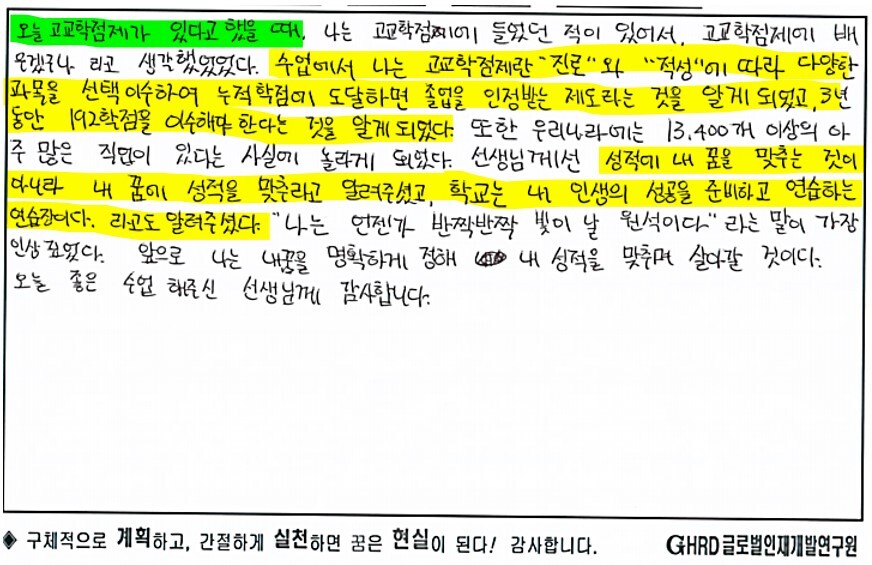 오늘 고교학점제가 있다고 했을 때, 나는 고교학점제에 들었던 적이 있어서, 고교학점제에 배
우겠구나 라고 생각했었었다. 수업에서 나는 고교학점제란 "진로"와 "적성"에 따라 다양한
과목을 선택 이수하여 누적학점에 도달하면 졸업을 인정받는 제도라는 것을 알게 되었고, 3년
동안 192학점을 이수해야 한다는 것을 알게 되었다. 또한 우리나라에는 13,400개 이상의 아
주 많은 직업이 있다는 사실에 놀라게 되었다. 선생님께선 성적에 내 꿈을 맞추는 것이
아니라 내 꿈에 성적을 맞추라고 알려주셨고, 학교는 내 인생의 성공을 준비하고 연습하는
연습장이다. 라고도 알려주셨다. "나는 언젠가 반짝반짝 빛이 날 원석이다" 라는 말이 가장
인상 깊었다. 앞으로 나는 내꿈을 명확하게 정해 내 성적을 맞추며 살아갈 것이다.
오늘 좋은 수업 해주신 선생님께 감사합니다.
◈ 구체적으로 계획하고, 간절하게 실천하면 꿈은 현실이 된다! 감사합니다. GHRD글로벌인재개발연구원